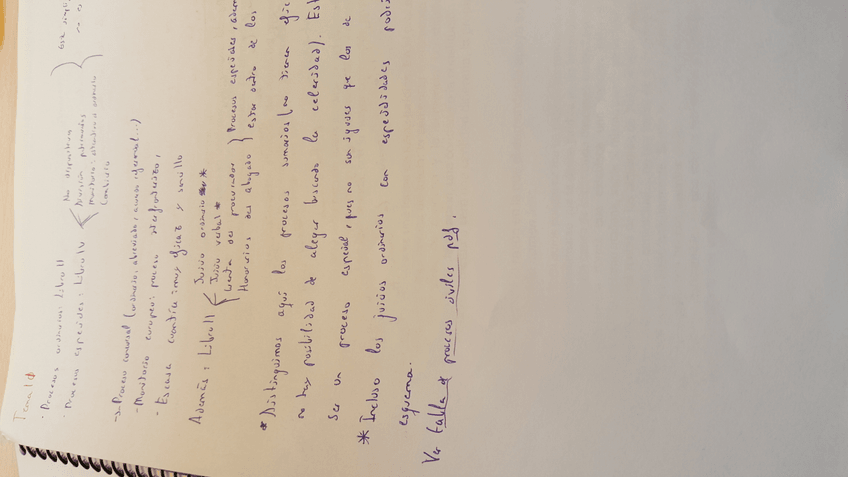 Tema 10
· Procesos ordinarios: Libro II
· Procesos especiales: Libro IV
No dispositivos
División patrimonios
Monitorio: alternativo a ordinario
Cambiario
-> Proceso concursal (ordinario, abreviado, acuerdo
- Monitorio europeo: proceso transfronterizo,
- Escasa cuantía: muy eficaz y sencillo
Además: Libro II
Juicio ordinario *
Juicio verbal *
Cuenta del procurador
Honorarios del abogado
Procesos especiales,
estar dentro de los
* Distinguimos aquí los procesos sumarios (no tienen
no hay posibilidad de alegar buscando la celeridad).
ser un proceso especial, pues no son iguales que los de
* Incluso los juicios ordinarios con especialidades
esquema.
Ver tabla procesos civiles pdf.